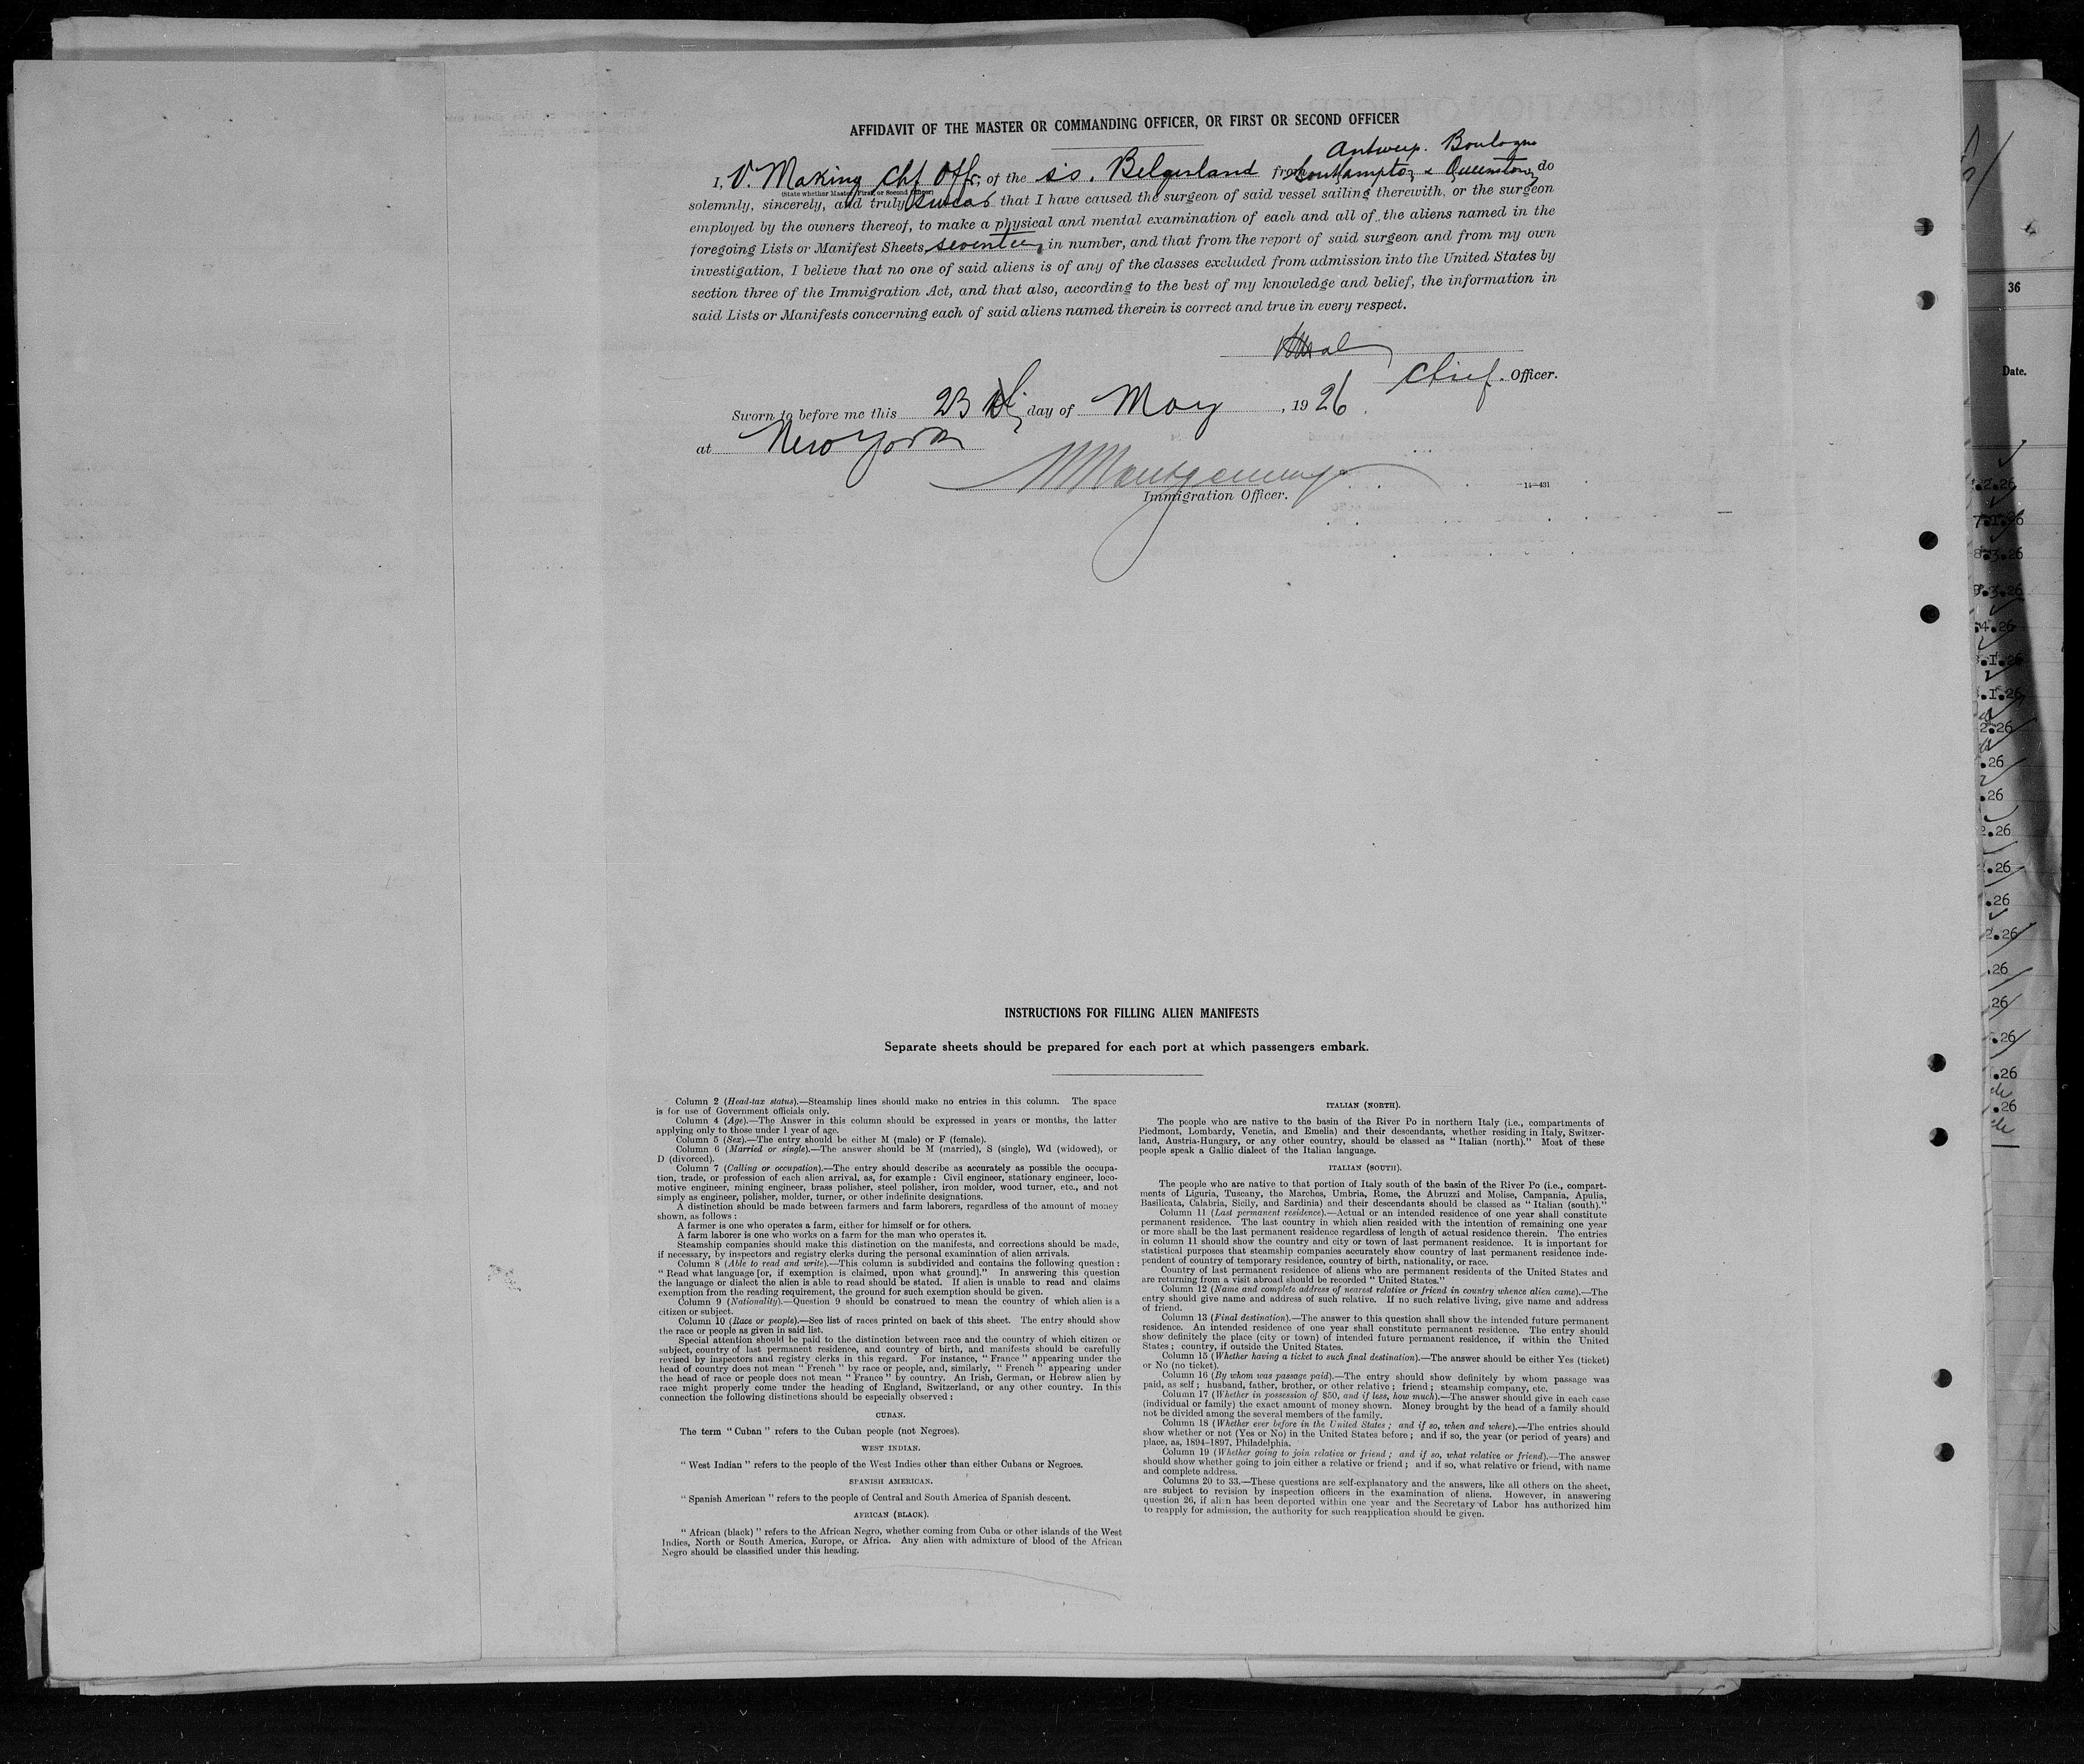 AFFIDAVIT OF THE MASTER OR COMMANDING OFFICER, OR FIRST OR SECOND OFFICER
Antwerp. Boulogne
I, V. Making Chf Offr, of the s.s. Belgenland from Southampton & Queenstown, do
(State whether Master, First, or Second Officer)
solemnly, sincerely, and truly swear that I have caused the surgeon of said vessel sailing therewith, or the surgeon
employed by the owners thereof, to make a physical and mental examination of each and all of the aliens named in the
foregoing Lists or Manifest Sheets, seventeen in number, and that from the report of said surgeon and from my own
investigation, I believe that no one of said aliens is of any of the classes excluded from admission into the United States by
section three of the Immigration Act, and that also, according to the best of my knowledge and belief, the information in
said Lists or Manifests concerning each of said aliens named therein is correct and true in every respect.
Chief Officer.
Sworn to before me this 23 day of May, 1926.
at New York
Montgomery
Immigration Officer.
14—431
INSTRUCTIONS FOR FILLING ALIEN MANIFESTS
Separate sheets should be prepared for each port at which passengers embark.
Column 2 (Head-tax status).—Steamship lines should make no entries in this column. The space
is for use of Government officials only.
Column 4 (Age).—The Answer in this column should be expressed in years or months, the latter
applying only to those under 1 year of age.
Column 5 (Sex).—The entry should be either M (male) or F (female).
Column 6 (Married or single).—The answer should be M (married), S (single), Wd (widowed), or
D (divorced).
Column 7 (Calling or occupation).—The entry should describe as accurately as possible the occupa-
tion, trade, or profession of each alien arrival, as, for example: Civil engineer, stationary engineer, loco-
motive engineer, mining engineer, brass polisher, steel polisher, iron molder, wood turner, etc., and not
simply as engineer, polisher, molder, turner, or other indefinite designations.
A distinction should be made between farmers and farm laborers, regardless of the amount of money
shown, as follows:
A farmer is one who operates a farm, either for himself or for others.
A farm laborer is one who works on a farm for the man who operates it.
Steamship companies should make this distinction on the manifests, and corrections should be made,
if necessary, by inspectors and registry clerks during the personal examination of alien arrivals.
Column 8 (Able to read and write).—This column is subdivided and contains the following question:
"Read what language [or, if exemption is claimed, upon what ground]." In answering this question
the language or dialect the alien is able to read should be stated. If alien is unable to read and claims
exemption from the reading requirement, the ground for such exemption should be given.
Column 9 (Nationality).—Question 9 should be construed to mean the country of which alien is a
citizen or subject.
Column 10 (Race or people).—See list of races printed on back of this sheet. The entry should show
the race or people as given in said list.
Special attention should be paid to the distinction between race and the country of which citizen or
subject, country of last permanent residence, and country of birth, and manifests should be carefully
revised by inspectors and registry clerks in this regard. For instance, "France" appearing under the
head of country does not mean "French" by race or people, and, similarly, "French" appearing under
the head of race or people does not mean "France" by country. An Irish, German, or Hebrew alien by
race might properly come under the heading of England, Switzerland, or any other country. In this
connection the following distinctions should be especially observed:
CUBAN.
The term "Cuban" refers to the Cuban people (not Negroes).
WEST INDIAN.
"West Indian" refers to the people of the West Indies other than either Cubans or Negroes.
SPANISH AMERICAN.
"Spanish American" refers to the people of Central and South America of Spanish descent.
AFRICAN (BLACK).
"African (black)" refers to the African Negro, whether coming from Cuba or other islands of the West
Indies, North or South America, Europe, or Africa. Any alien with admixture of blood of the African
Negro should be classified under this heading.
ITALIAN (NORTH).
The people who are native to the basin of the River Po in northern Italy (i.e., compartments of
Piedmont, Lombardy, Venetia, and Emelia) and their descendants, whether residing in Italy, Switzer-
land, Austria-Hungary, or any other country, should be classed as "Italian (north)." Most of these
people speak a Gallic dialect of the Italian language.
ITALIAN (SOUTH).
The people who are native to that portion of Italy south of the basin of the River Po (i.e., compart-
ments of Liguria, Tuscany, the Marches, Umbria, Rome, the Abruzzi and Molise, Campania, Apulia,
Basilicata, Calabria, Sicily, and Sardinia) and their descendants should be classed as "Italian (south)."
Column 11 (Last permanent residence).—Actual or an intended residence of one year shall constitute
permanent residence. The last country in which alien resided with the intention of remaining one year
or more shall be the last permanent residence regardless of length of actual residence therein. The entries
in column 11 should show the country and city or town of last permanent residence. It is important for
statistical purposes that steamship companies accurately show country of last permanent residence inde-
pendent of country of temporary residence, country of birth, nationality, or race.
Country of last permanent residence of aliens who are permanent residents of the United States and
are returning from a visit abroad should be recorded "United States."
Column 12 (Name and complete address of nearest relative or friend in country whence alien came).—The
entry should give name and address of such relative. If no such relative living, give name and address
of friend.
Column 13 (Final destination).—The answer to this question shall show the intended future permanent
residence. An intended residence of one year shall constitute permanent residence. The entry should
show definitely the place (city or town) of intended future permanent residence, if within the United
States; country, if outside the United States.
Column 15 (Whether having a ticket to such final destination).—The answer should be either Yes (ticket)
or No (no ticket).
Column 16 (By whom was passage paid).—The entry should show definitely by whom passage was
paid, as self; husband, father, brother, or other relative; friend; steamship company, etc.
Column 17 (Whether in possession of $50, and if less, how much).—The answer should give in each case
(individual or family) the exact amount of money shown. Money brought by the head of a family should
not be divided among the several members of the family.
Column 18 (Whether ever before in the United States; and if so, when and where).—The entries should
show whether or not (Yes or No) in the United States before; and if so, the year (or period of years) and
place, as, 1894-1897, Philadelphia.
Column 19 (Whether going to join relative or friend; and if so, what relative or friend).—The answer
should show whether going to join either a relative or friend; and if so, what relative or friend, with name
and complete address.
Columns 20 to 33.—These questions are self-explanatory and the answers, like all others on the sheet,
are subject to revision by inspection officers in the examination of aliens. However, in answering
question 26, if alien has been deported within one year and the Secretary of Labor has authorized him
to reapply for admission, the authority for such reapplication should be given.
36
Date.